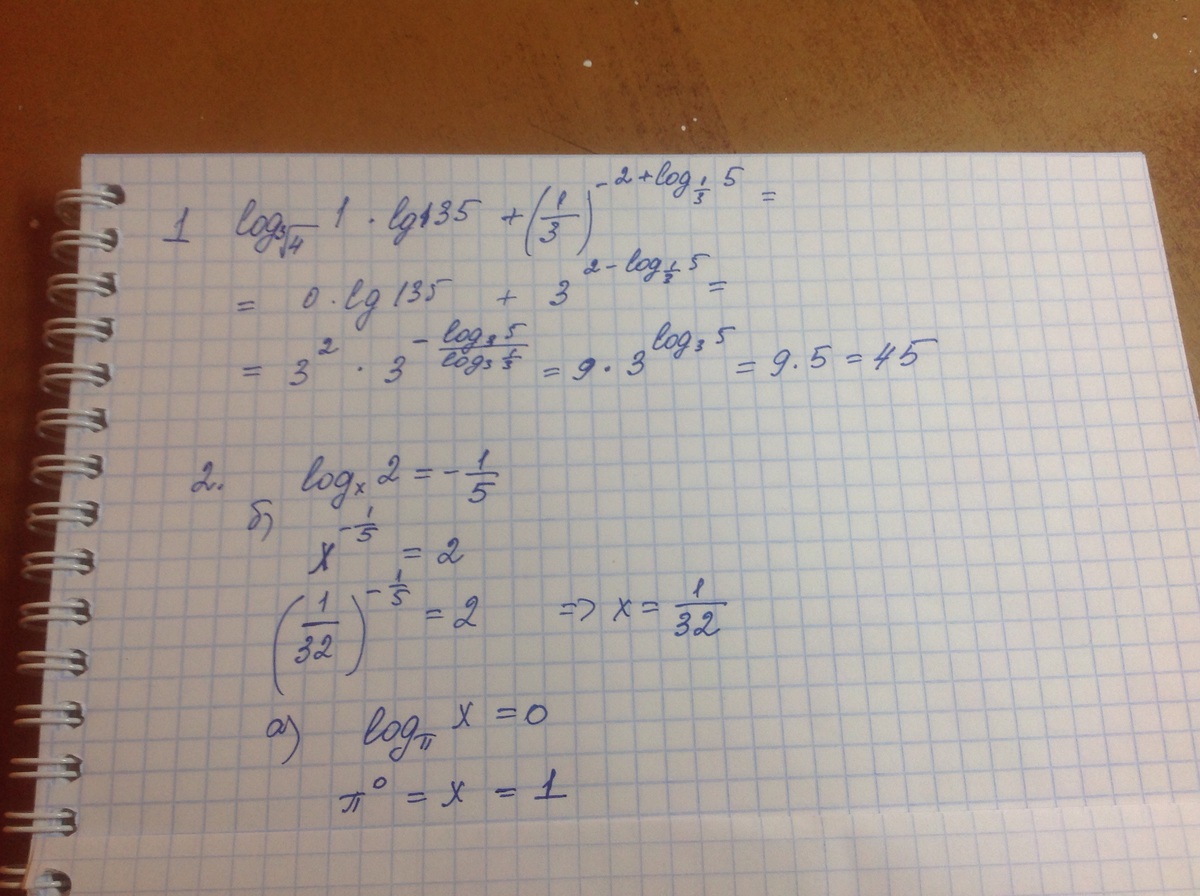 1 log_{∛4} 1 · lg135 + (1/3)^{-2+log_{1/3} 5} =
= 0 · lg 135 + 3^{2-log_{1/3} 5} =
= 3^2 · 3^{-\frac{log_3 5}{log_3 1/3}} = 9 · 3^{log_3 5} = 9 · 5 = 45
2. log_x 2 = -1/5
б)
x^{-1/5} = 2
(1/32)^{-1/5} = 2 => x = 1/32
а) log_π x = 0
π^0 = x = 1